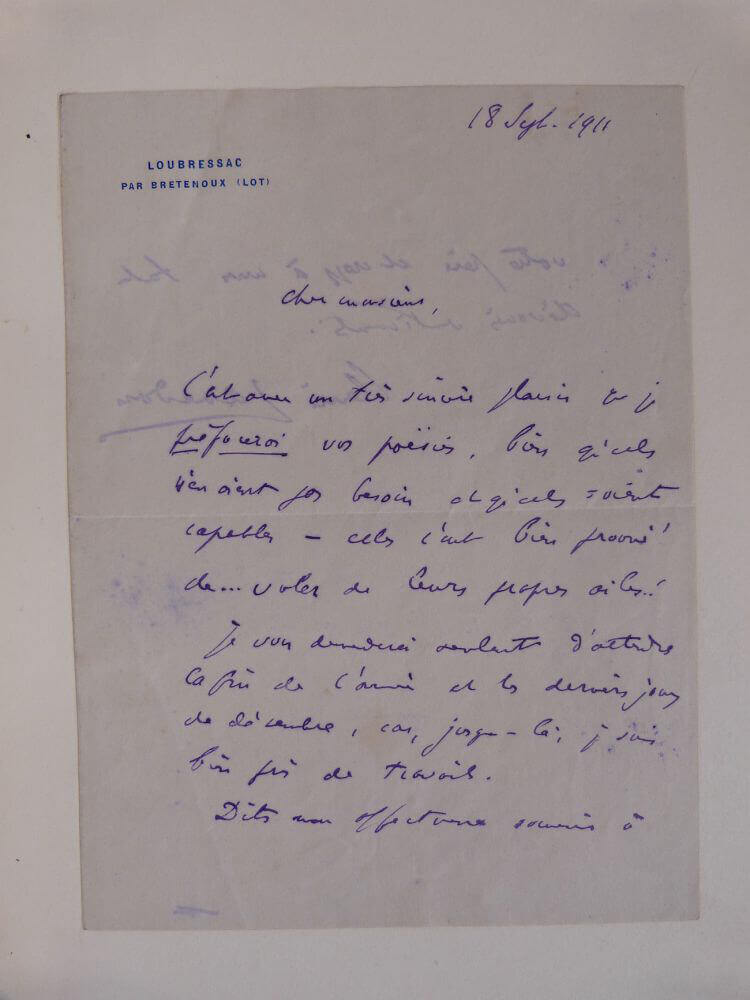 18 Sept. 1911
LOUBRESSAC
PAR BRETENOUX (LOT)
Cher monsieur,
C'est avec un très sincère plaisir que je
préfacerai vos poésies, bien qu'elles
n'en aient pas besoin et qu'elles soient
capables — celles l'ont bien prouvé!
de... voler de leurs propres ailes!
Je vous demanderai seulement d'attendre
la fin de l'année et les derniers jours
de décembre, car, jusque-là, je suis
bien pris de travail.
Dites mon affectueux souvenir à